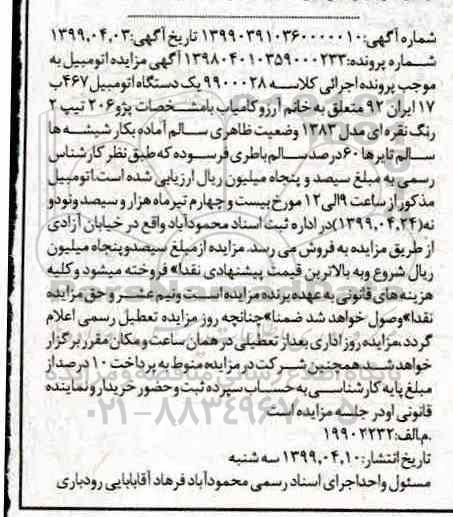 شماره آگهی:۱۳۹۹۰۳۹۱۰۳۶۰۰۰۰۰۱۰ تاریخ آگهی:۱۳۹۹,۰۴,۰۳
شماره پرونده:۱۳۹۸۰۴۰۱۰۳۵۹۰۰۰۲۳۳ آگهی مزایده اتومبیل به
موجب پرونده اجرائی کلاسه ۹۹۰۰۰۲۸ یک دستگاه اتومبیل ۴۶۷ب
۱۷ ایران ۹۲ متعلق به خانم آرزو کامیاب بامشخصات پژو ۲۰۶ تیپ ۲
رنگ نقره ای مدل ۱۳۸۳ وضعیت ظاهری سالم آماده بکار شیشه ها
سالم تایرها ۶۰ درصد سالم باطری فرسوده که طبق نظر کارشناس
رسمی به مبلغ سیصد و پنجاه میلیون ریال ارزیابی شده است.اتومبیل
مذکور از ساعت ۹الی ۱۲ مورخ بیست و چهارم تیرماه هزار و سیصد و نود و
نه(۱۳۹۹,۰۴,۲۴)در اداره ثبت اسناد محمودآباد واقع در خیابان آزادی
از طریق مزایده به فروش می رسد. مزایده از مبلغ سیصدوپنجاه میلیون
ریال شروع وبه بالاترین قیمت پیشنهادی نقدا» فروخته میشود و کلیه
هزینه های قانونی به عهده برنده مزایده است ونیم عشر و حق مزایده
نقدا»وصول خواهد شد ضمنا»چنانچه روز مزایده تعطیل رسمی اعلام
گردد،مزایده روز اداری بعداز تعطیلی در همان ساعت و مکان مقرر برگزار
خواهدشد.همچنین شرکت در مزایده منوط به پرداخت ۱۰ درصد از
مبلغ پایه کارشناسی به حساب سپرده ثبت و حضور خریدار و نماینده
قانونی اودر جلسه مزایده است
م.الف:۱۹۹۰۲۲۳۲
تاریخ انتشار:۱۳۹۹,۰۴,۱۰ سه شنبه
مسئول واحداجرای اسناد رسمی محمودآباد فرهاد آقابابایی رودباری
ParsNamadData
۰۲۱-۸۸۳۴۹۶۷۰-۵